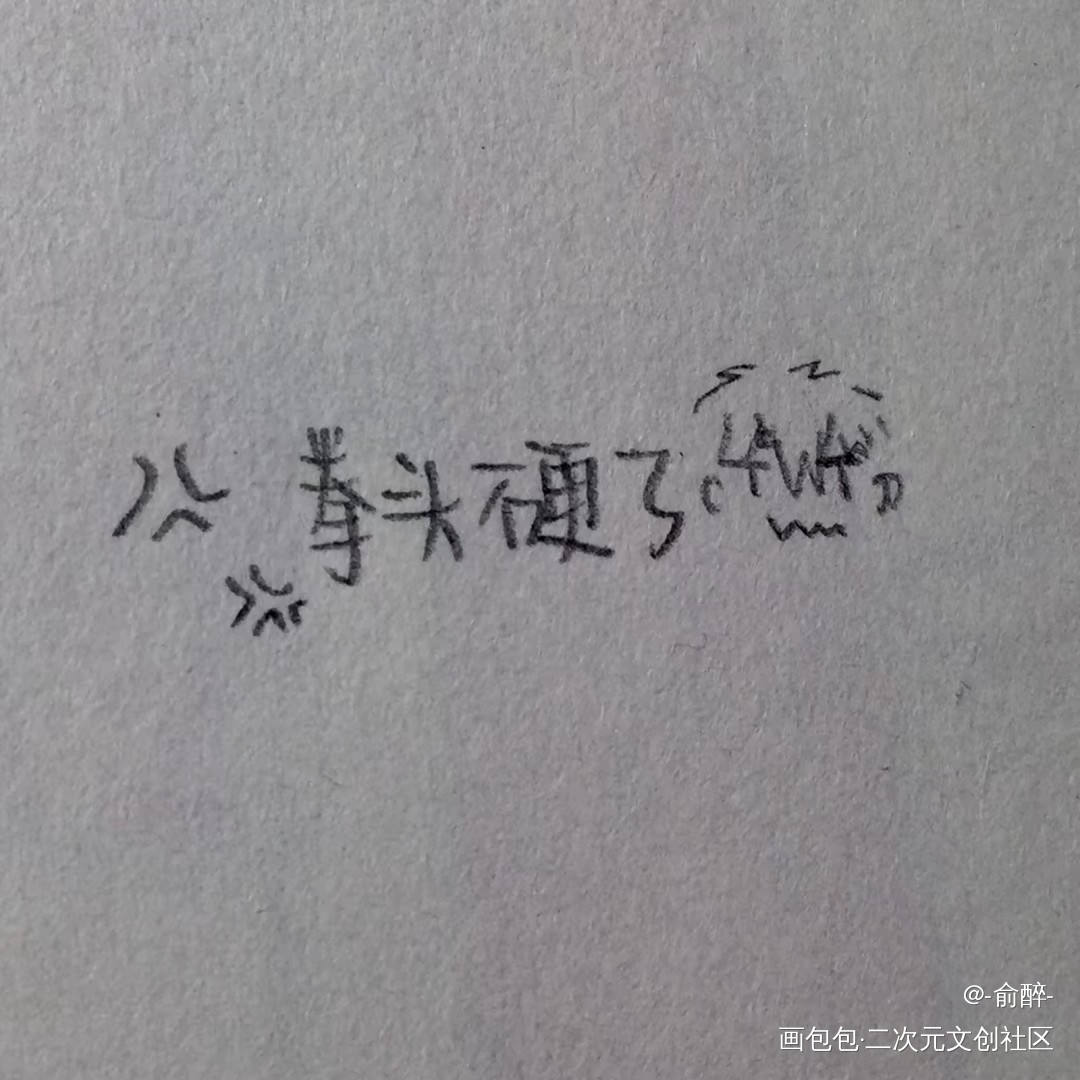 拳头硬了
@-俞醉-
画包包·二次元文创社区